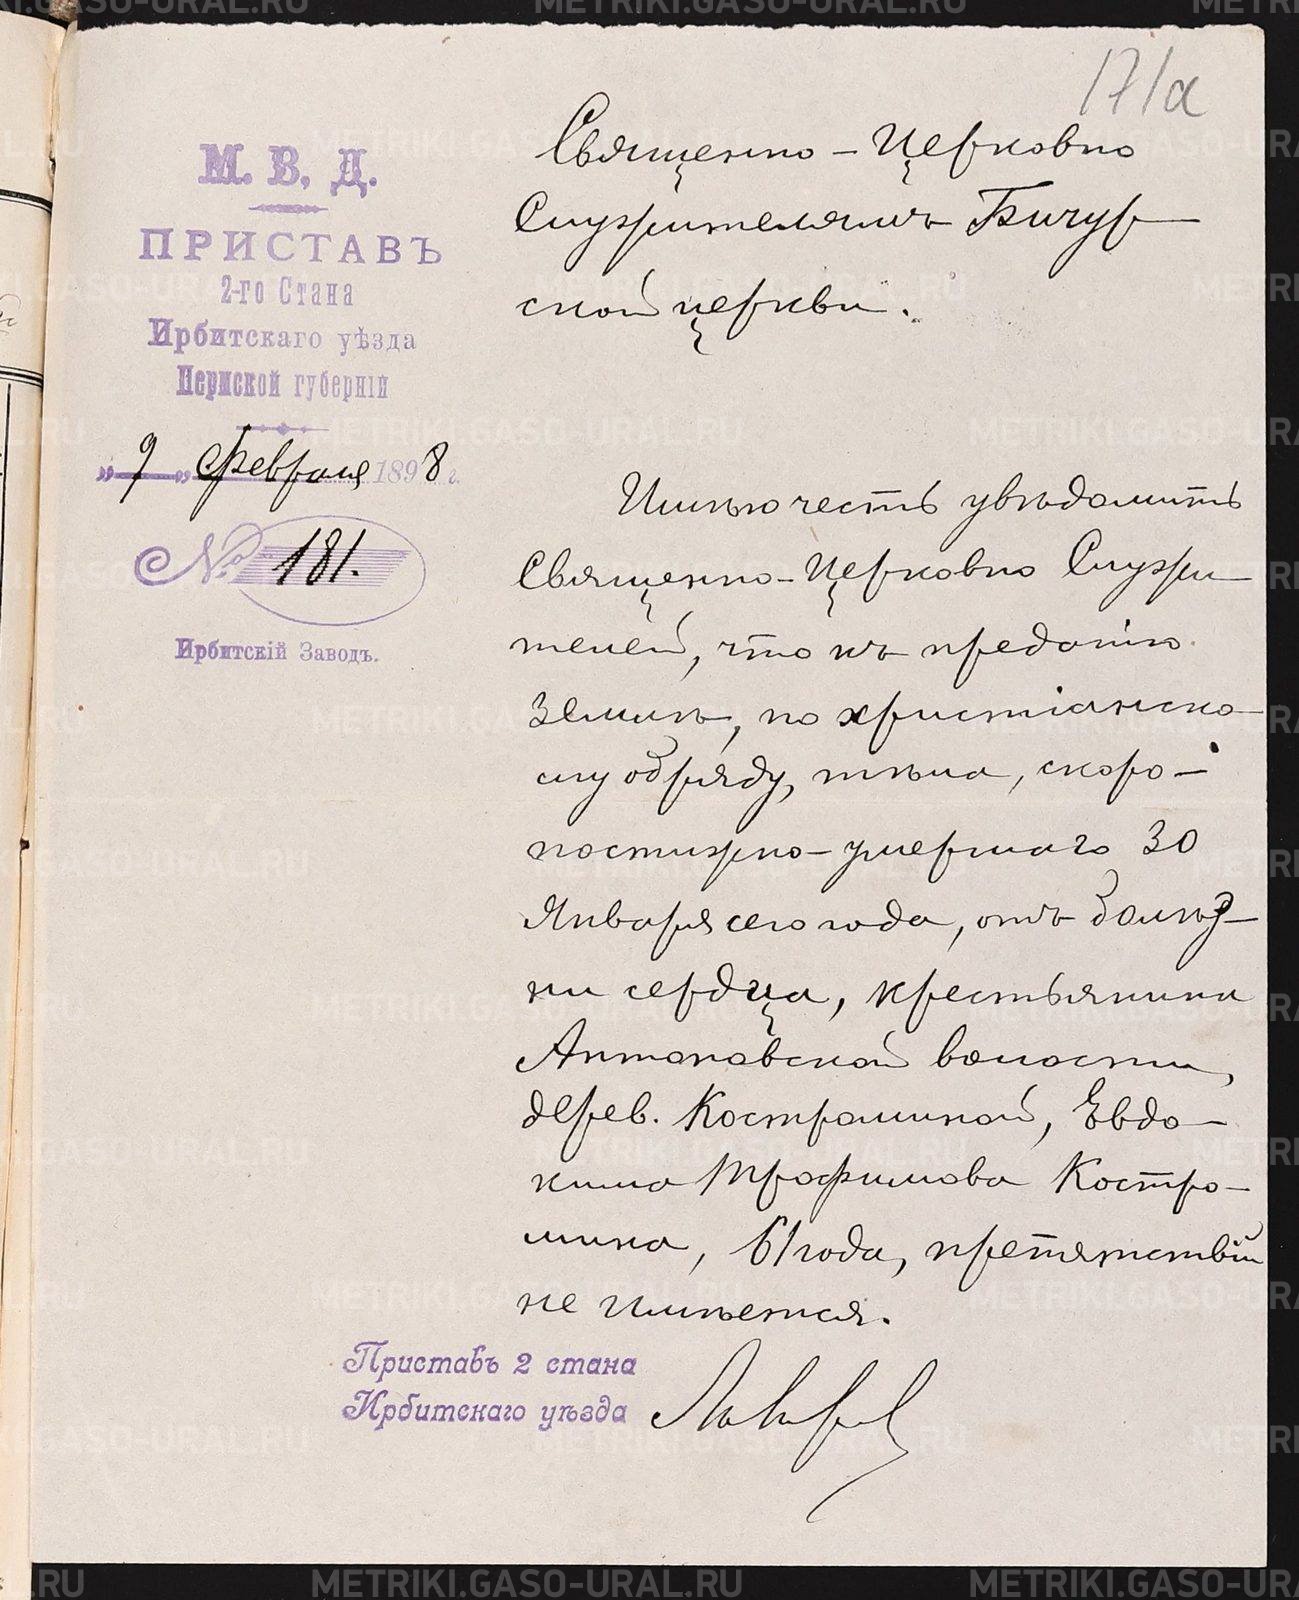 171а
М. В. Д.
ПРИСТАВЪ
2-го Стана
Ирбитскаго уѣзда
Пермской губерніи
„9„ Февраля 1898 г.
№ 181.
Ирбитскій Заводъ.
Священно-Церковно
Служителямъ Бичур-
ской церкви.
Имѣю честь увѣдомить
Священно-Церковно Служи-
телей, что къ преданію
землѣ, по христіанско-
му обряду, тѣла, скоро-
постижно-умершаго 30
Января сего года, отъ болѣз-
ни сердца, крестьянина
Антоновской волости,
дерев. Костроминой, Евдо-
кима Трофимова Костро-
мина, 61 года, препятствій
не имѣется.
Приставъ 2 стана
Ирбитскаго уѣзда
METRIKI.GASO-URAL.RU